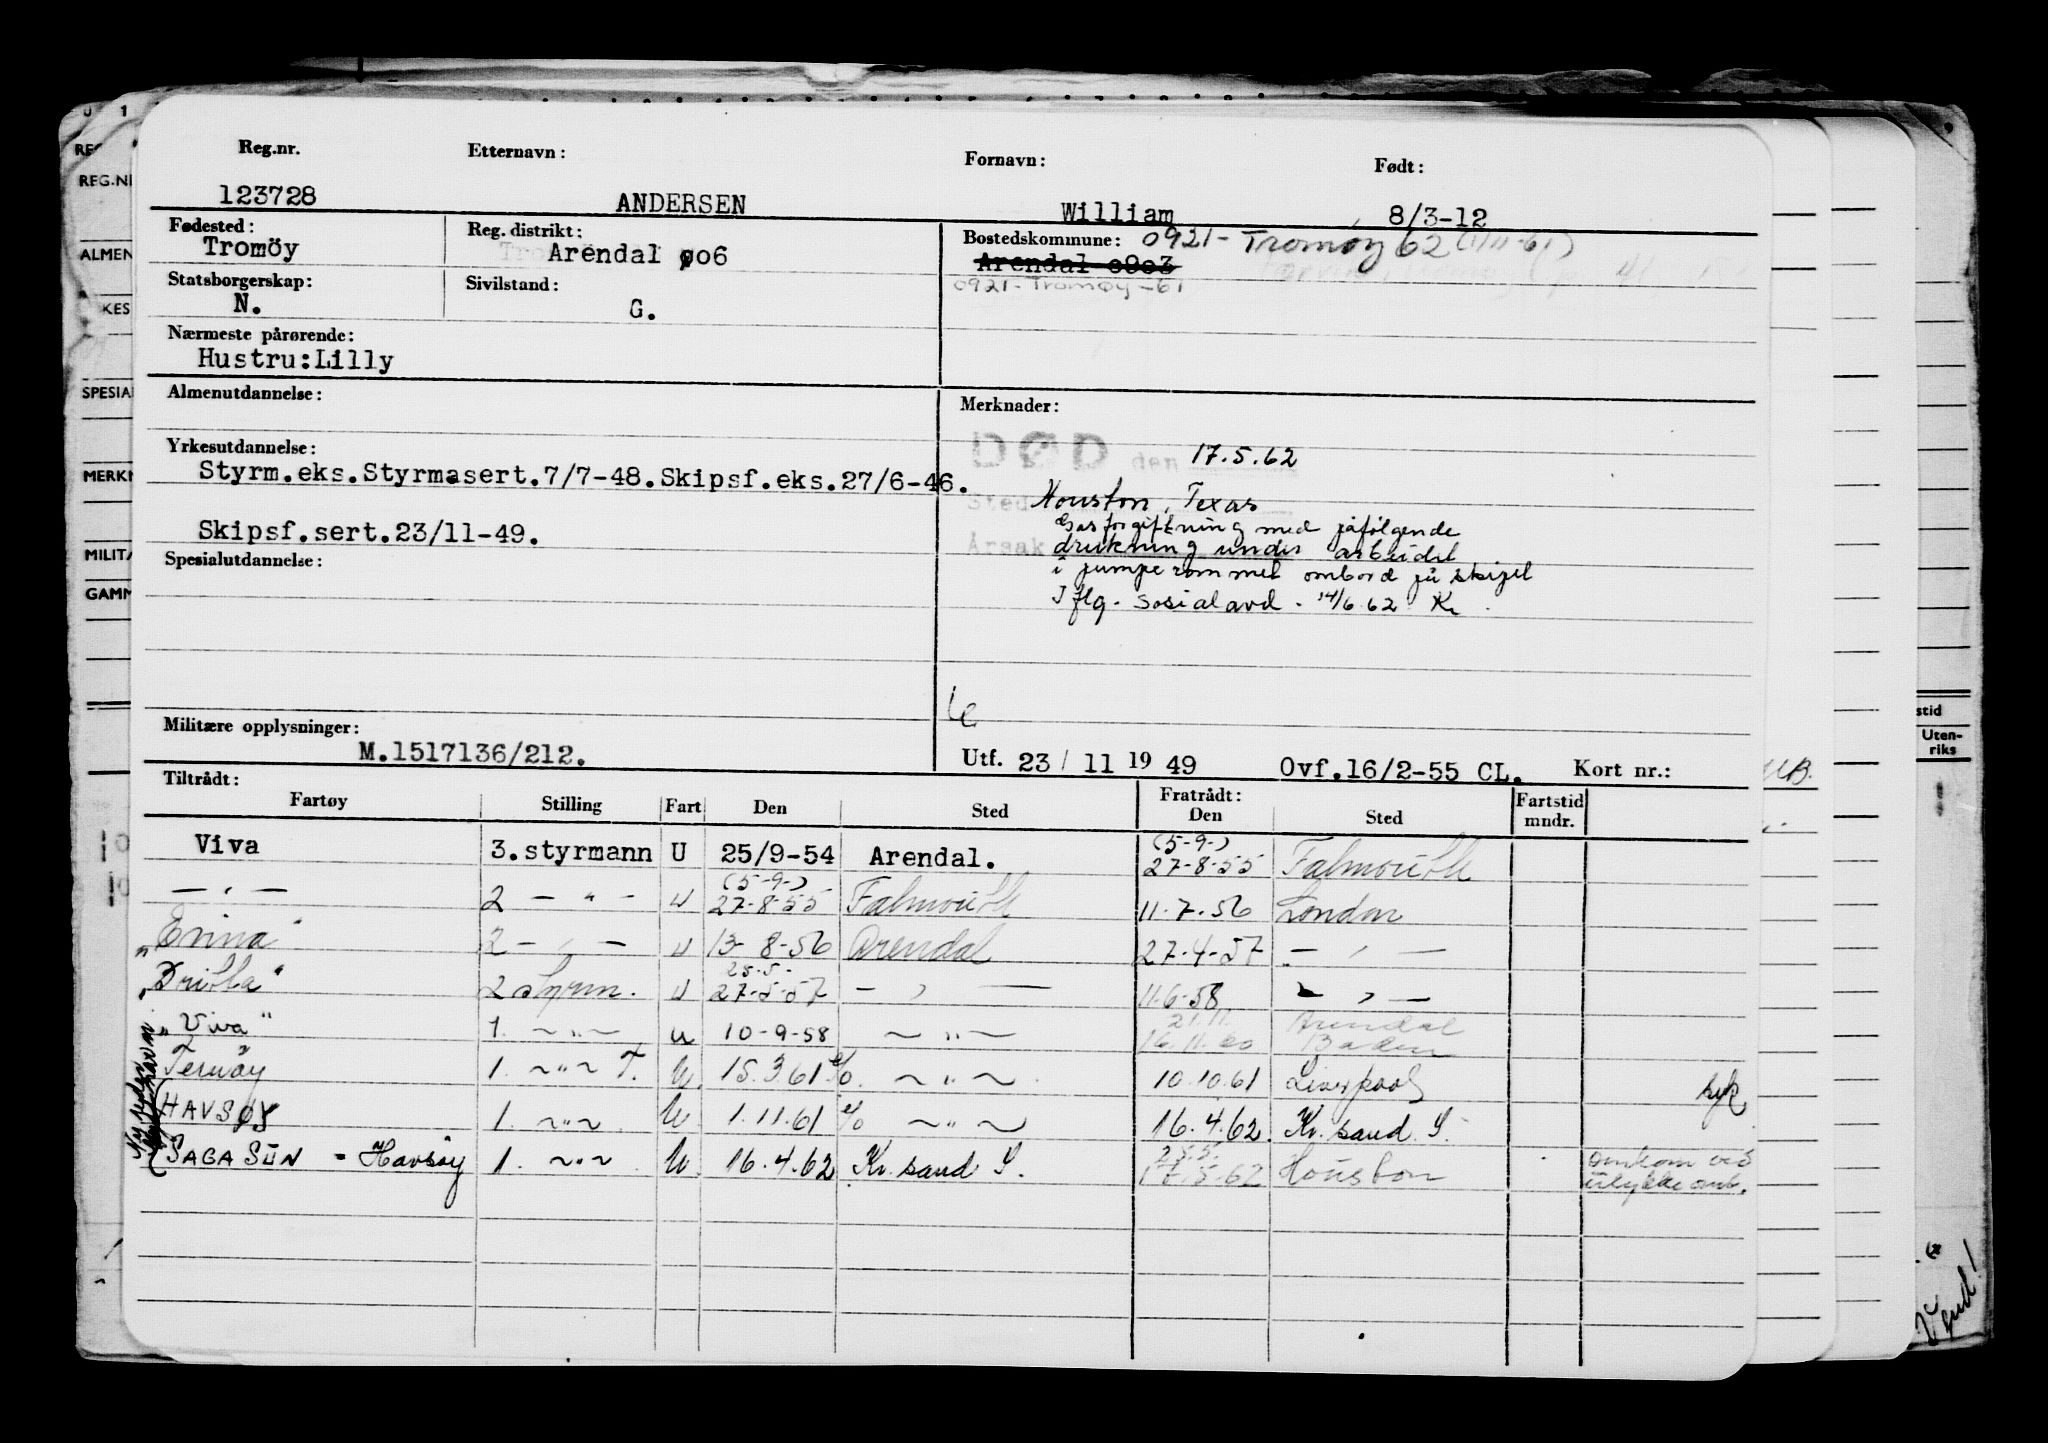 Reg.nr. Etternavn: Fornavn: Født:
123728 ANDERSEN William 8/3-12
Fødested: Reg. distrikt: Bostedskommune: 0921- Tromøy 62 (1/11-61)
Tromöy Arendal 906 Arendal 0903
0921- Tromøy -61
Statsborgerskap: Sivilstand:
N. G.
Nærmeste pårørende:
Hustru:Lilly
Almenutdannelse: Merknader:
Yrkesutdannelse: DØD den 17.5.62
Styrm.eks.Styrmasert.7/7-48.Skipsf.eks.27/6-46.
Sted Houston, Texas
Skipsf.sert.23/11-49.
Årsak Gasforgiftning med påfølgende
drukning under arbeidet
Spesialutdannelse:
i pumperommet ombord på skipet
Iflg. Sosialavd. 14/6.62 Kr.
Militære opplysninger:
M.1517136/212. Utf. 23/ 11 19 49 Ovf.16/2-55 CL. Kort nr.:
Tiltrådt: Fratrådt: Fartstid
Fartøy Stilling Fart Den Sted Den Sted mndr.
Viva 3.styrmann U 25/9-54 Arendal. (5-9-) 27-8-55 Falmouth
— " — 2 — " — u (5-9-) 27-8-55 Falmouth 11.7.56 London
2 — " — u 13-8-56 Arendal 27-4-57 — " —
2 styrm. u 25-5- 27-5-57 — " — 11.6-58 — " —
"Viva" 1. ~ " ~ u 10-9-58 ~ " ~ 21.11. 16.11.60 Arendal
Ternöy 1. ~ " ~ T. U. 15.3.61 ~ " ~ 10.10.61 Liverpool syk
HAVSØY 1. ~ " ~ U 1.11.61 ~ " ~ 16.4.62 Kr. sand S.
SAGA SUN - Havsöy 1. ~ " ~ U. 16.4.62 Kr. sand S. 25.5. 17.5.62 Houston omkom ved
ulykke omb.
REG.NR
ALMEN
KES
SPESIAL
MERKN
MILITÆ
GAMM
stid
Uten-
riks
Vend!